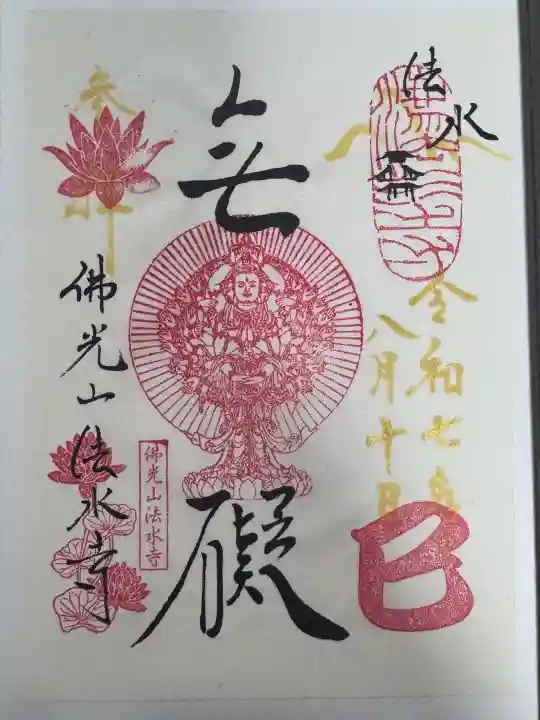 法水
令和七年
八月十日
巳
無
礙
参
拝
佛光山法水寺
佛光山法水寺